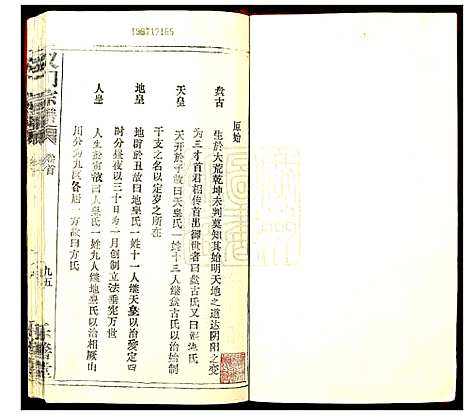 198712165
原始
盘古
生於大荒乾坤未判莫知其始明天地之道达阴阳之变
为三才首君相传首出御世者曰盘古氏一曰浑沌氏
天皇
天开於子故曰天皇氏一姓十三人继盘古氏以治始制
干支之名以定岁之所在
地皇
地辟於丑故曰地皇氏一姓十一人继天皇以治爰定四
时分昼夜以三十日为一月创制立法垂宪万世
人皇
人生於寅故曰人皇氏一姓九人继地皇氏以治相厥山
川分为九区各居一方故曰方氏
宗谱
卷首
九五